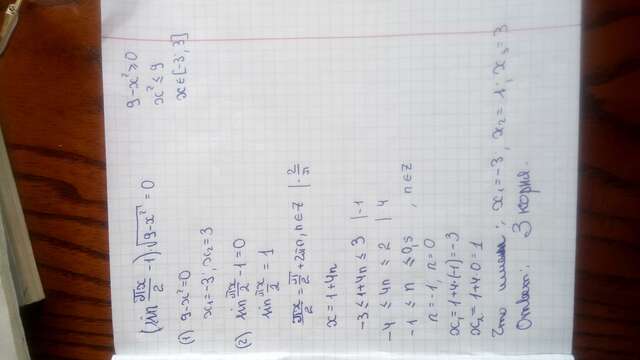 (sin πx/2 -1)√9-x² = 0
9-x² ≥ 0
x² ≤ 9
x ∈ [-3; 3]
(1) 9-x²=0
x₁=-3; x₂=3
(2) sin πx/2 -1=0
sin πx/2 = 1
πx/2 = π/2 + 2πn, n∈Z | · 2/π
x = 1+4n
-3 ≤ 1+4n ≤ 3 |-1
-4 ≤ 4n ≤ 2 | 4
-1 ≤ n ≤ 0,5 , n∈Z
n=-1, n=0
x₁=1+4·(-1)=-3
x₂ = 1+4·0=1
Что имеем: x₁=-3; x₂=1; x₃=3
Ответ: 3 корня.